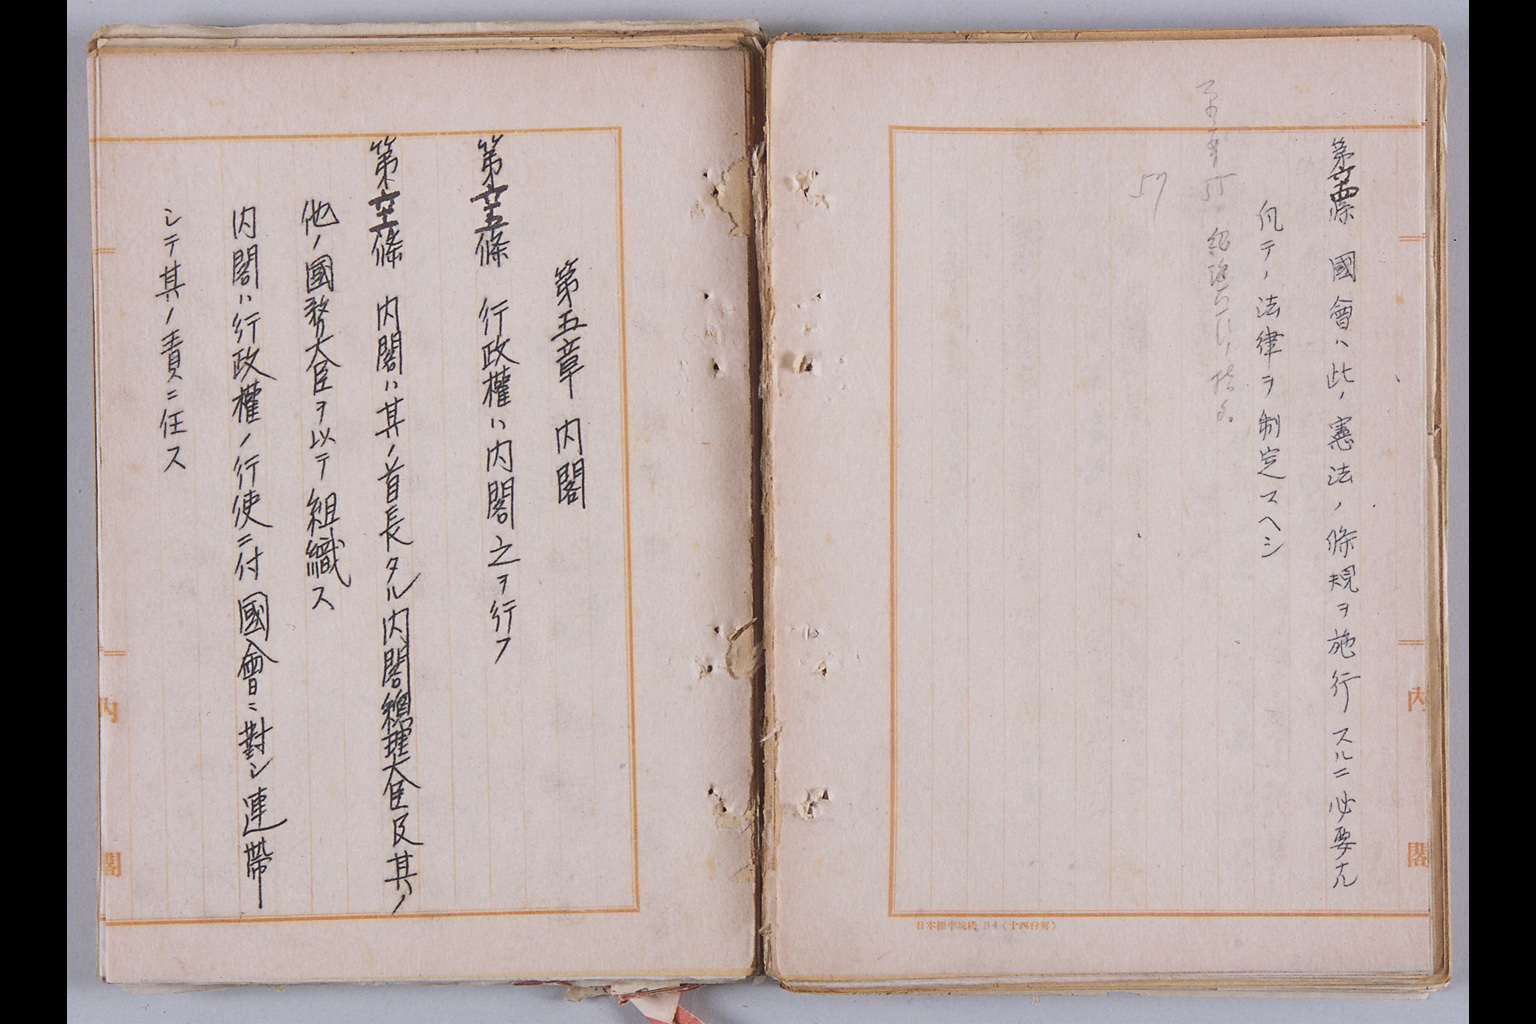 國會ハ此ノ憲法ノ條規ヲ施行スルニ必要ナル
凡テノ法律ヲ制定スヘシ
57
内
閣
第五章 内閣
行政權ハ内閣之ヲ行フ
内閣ハ其ノ首長タル内閣總理大臣及其ノ
他ノ國務大臣ヲ以テ組織ス
内閣ハ行政權ノ行使ニ付國會ニ對シ連帶
シテ其ノ責ニ任ス
内
閣